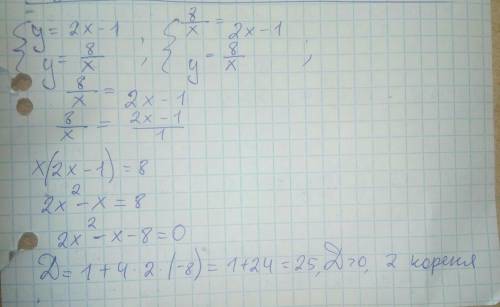 { y = 2x - 1 ; { 8/x = 2x - 1
{ y = 8/x ; { y = 8/x ;
8/x = 2x - 1
8/x = (2x - 1)/1
x(2x - 1) = 8
2x² - x = 8
2x² - x - 8 = 0
D = 1 + 4 · 2 · (-8) = 1 + 24 = 25, D>0, 2 корення